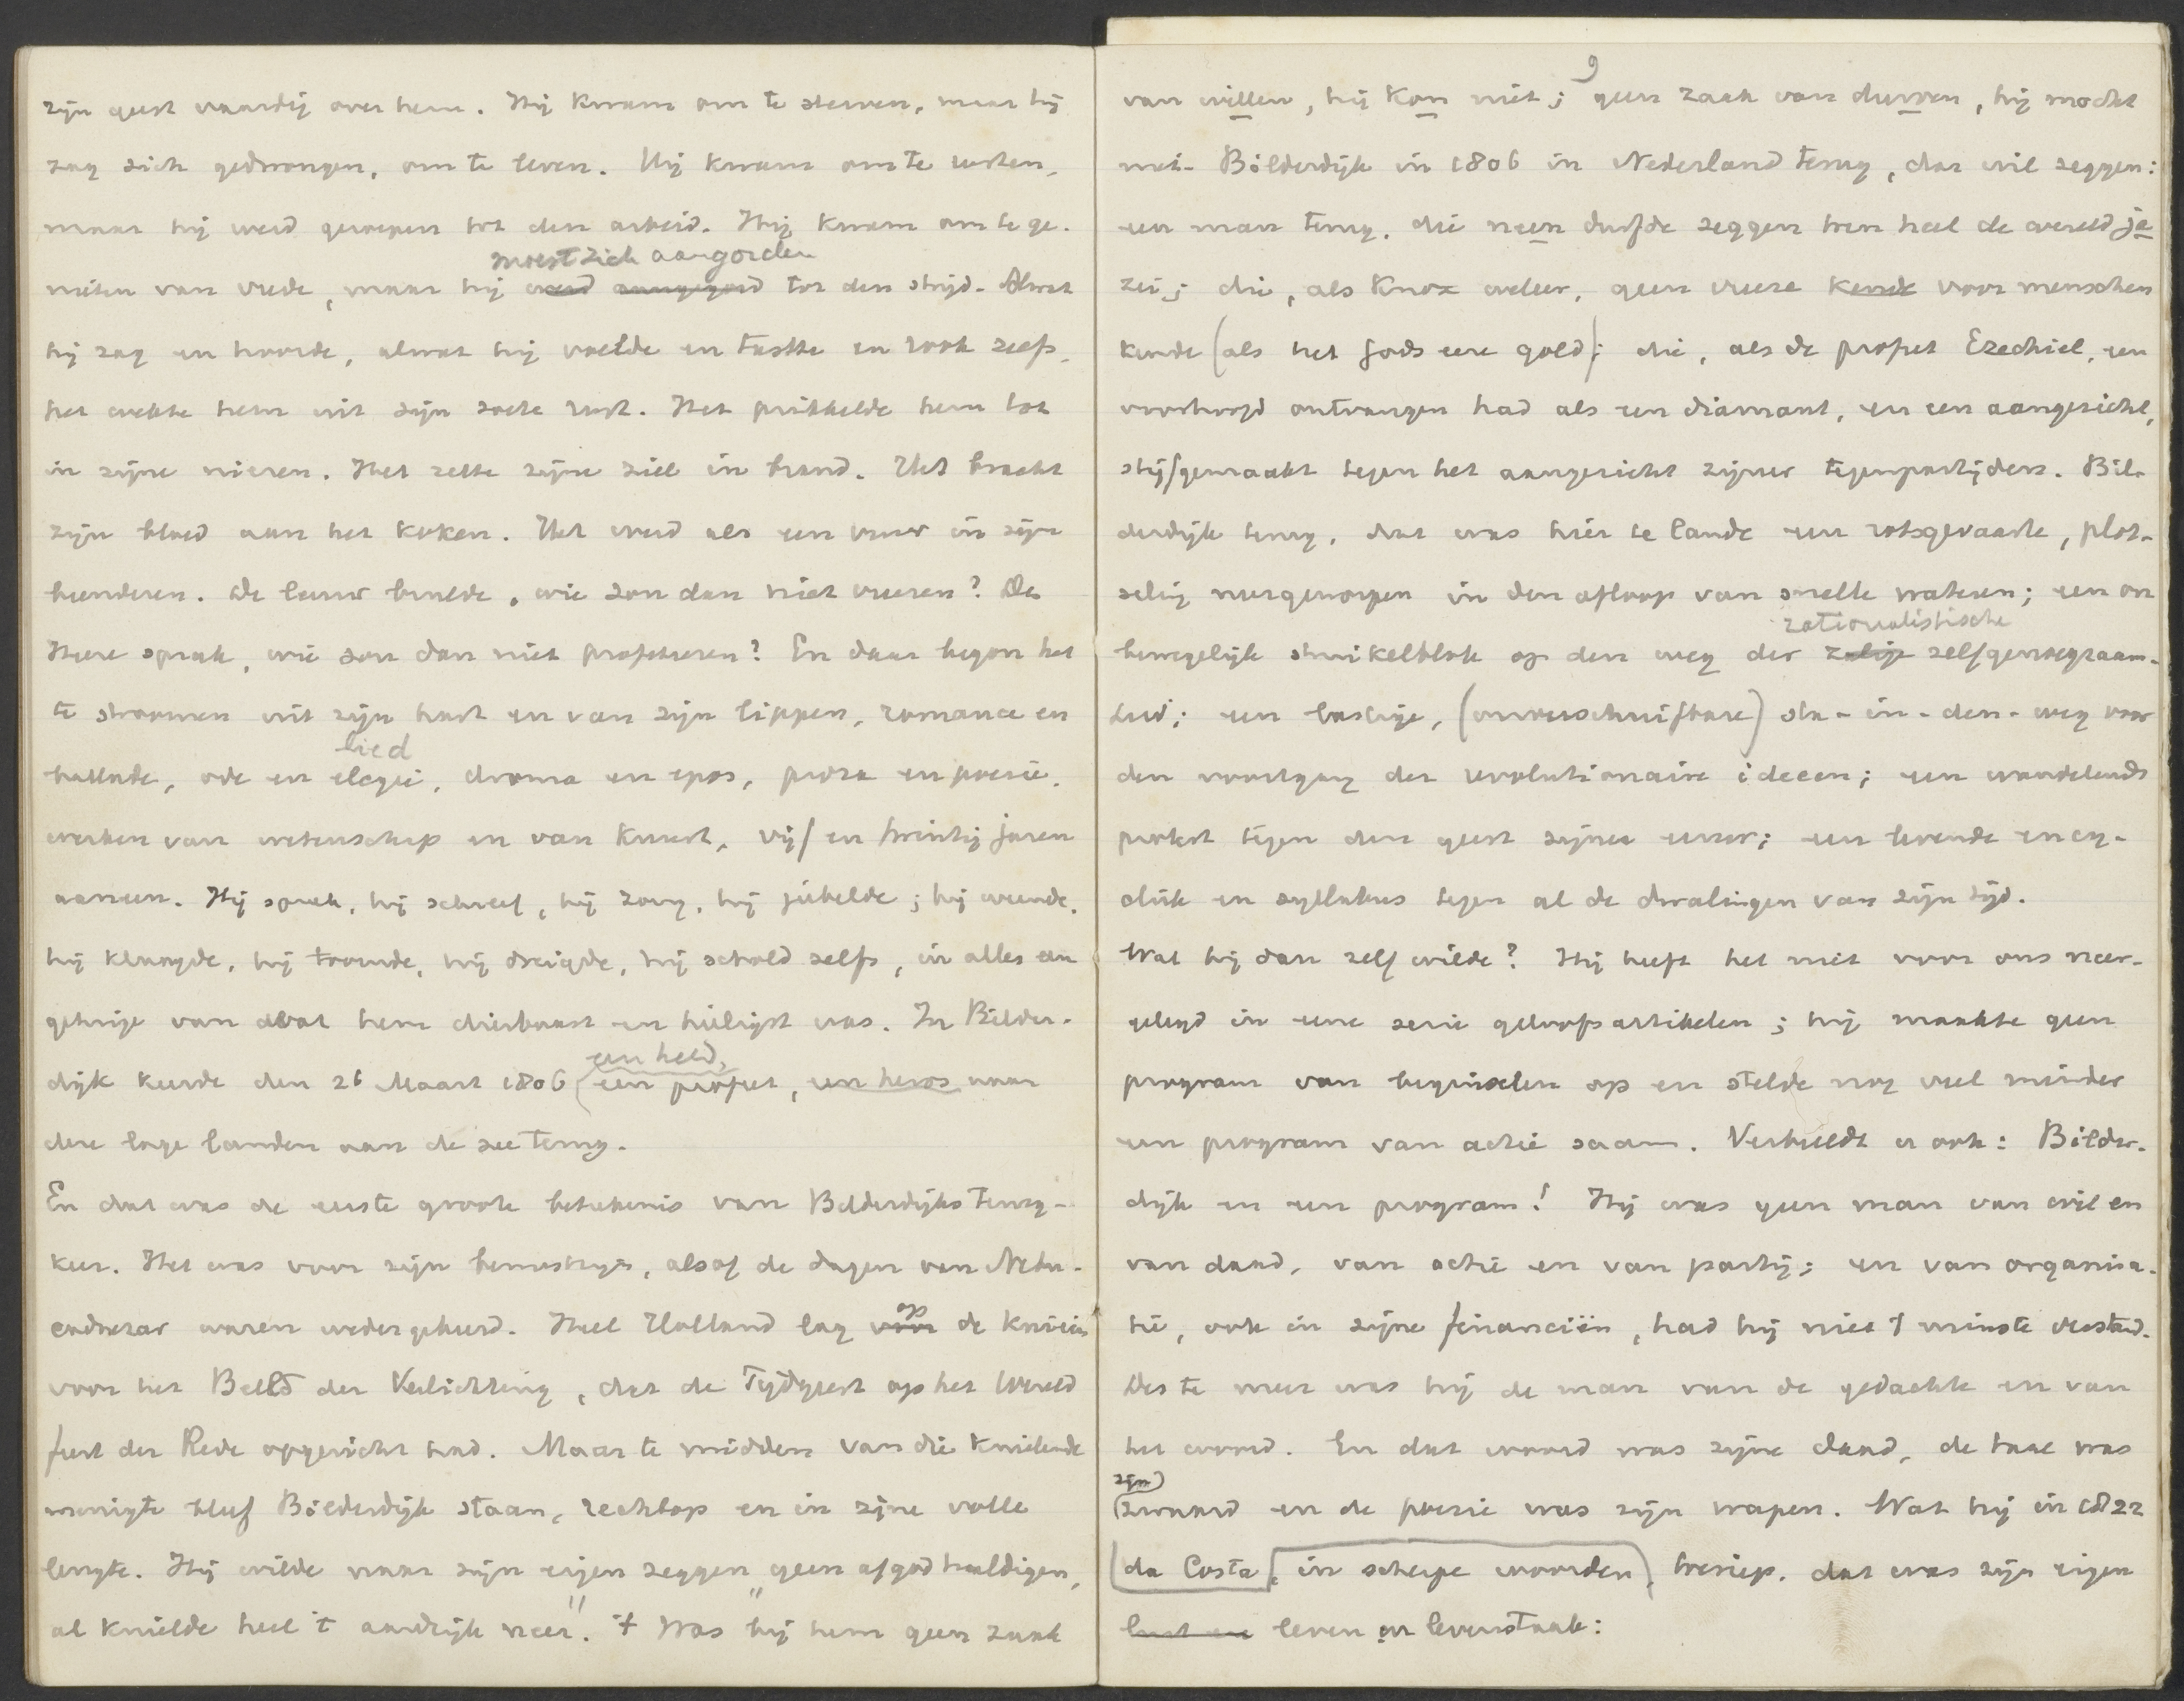 zijn geest vaardig over hem. Hij kwam om te sterven, maar hij
zag zich gedwongen, om te leven. Hij kwam om te rusten,
maar hij werd geroepen tot den arbeid. Hij kwam om te ge-
moest zich aangorden
nieten van vrede, maar hij werd aangegord tot den strijd. Alwat
hij zag en hoorde, alwat hij voelde en tastte en rook zelfs,
het wekte hem uit zijn zoete rust. Het prikkelde hem tot
in zijne nieren. Het zette zijne ziel in brand. Het bracht
zijn bloed aan het koken. Het werd als een vuur in zijn
beenderen. De leeuw brulde, wie zou dan niet vreezen? De
Heere sprak, wie zou dan niet profeteeren? En daar begon het
te stroomen uit zijn hart en van zijn lippen, romance en
lied
ballade, ode en elegie, drama en epos, proza en poezie,
werken van wetenschap en van kunst, vijf en twintig jaren
aaneen. Hij sprak, hij schreef, hij zong, hij jubelde; hij weende,
hij klaagde, hij toornde, hij dreigde, hij schold zelfs, in alles een
getuige van dwat hem dierbaarst en heiligst was. In Bilder-
een held,
dijk keerde den 26 Maart 1806 (een profeet, een heros naar
deze lage landen aan de zee terug.
En dat was de eerste groote beteekenis van Bilderdijks terug-
keer. Het was voor zijn bewustzijn, alsof de dagen van Nebu-
op
cadnezar waren wedergekeerd. Heel Holland lag voor de knieën
voor het Beeld der Verlichting, dat de Tijdgeest op het Wereld
feest der Rede opgericht had. Maar te midden van die knielende
menigte bleef Bilderdijk staan, rechtop en in zijne volle
lengte. Hij wilde naar zijn eigen zeggen "geen afgod huldigen,
al knielde heel 't aardrijk neer". 't Was bij hem geen zaak
9
van willen, hij kon niet; geen zaak van durven, hij mocht
niet. Bilderdijk in 1806 in Nederland terug, dat wil zeggen:
een man terug, die neen durfde zeggen toen heel de wereld ja
zei; die, als Knox weleer, geen vreeze kende voor menschen
kende (als het Gods eere gold); die, als de profeet Ezechiel, een
voorhoofd ontvangen had als een diamant, en een aangezicht,
stijf gemaakt tegen het aangezicht zijner tegenpartijders. Bil-
derdijk terug, dat was hier te lande een rotsgevaarte, plot-
seling neergeworpen in den afloop van snelle wateren; een on
rationalistische
bewegelijk struikelblok op den weg der zalige zelfgenoegzaam-
heid; een lastige, (onverschrijfbare) sta-in-den-weg voor
den voortgang der revolutionaire ideeën; een wandelende
protest tegen den geest zijner eeuw; een levende ency-
cliek en syllabus tegen al de dwalingen van zijn tijd.
Wat hij dan zelf wilde? Hij heeft het niet voor ons neer-
gelegd in eene serie geloofsartikelen; hij maakte geen
program van beginselen op en stelde nog veel minder
een program van actie saam. Verbeeldt u ook: Bilder-
dijk en een program! Hij was geen man van wil en
van daad, van actie en van partij; en van organisa-
tie, ook in zijne financiën, had hij niet 't minste verstand.
Des te meer was hij de man van de gedachte en van
het woord. En dat woord was zijne daad, de taal was
zijn
(zwaard en de poezie was zijn wapen. Wat hij in 1822
(da Costa, in scherpe woorden), toeriep, dat was zijn eigen
lust en leven en levenstaak: